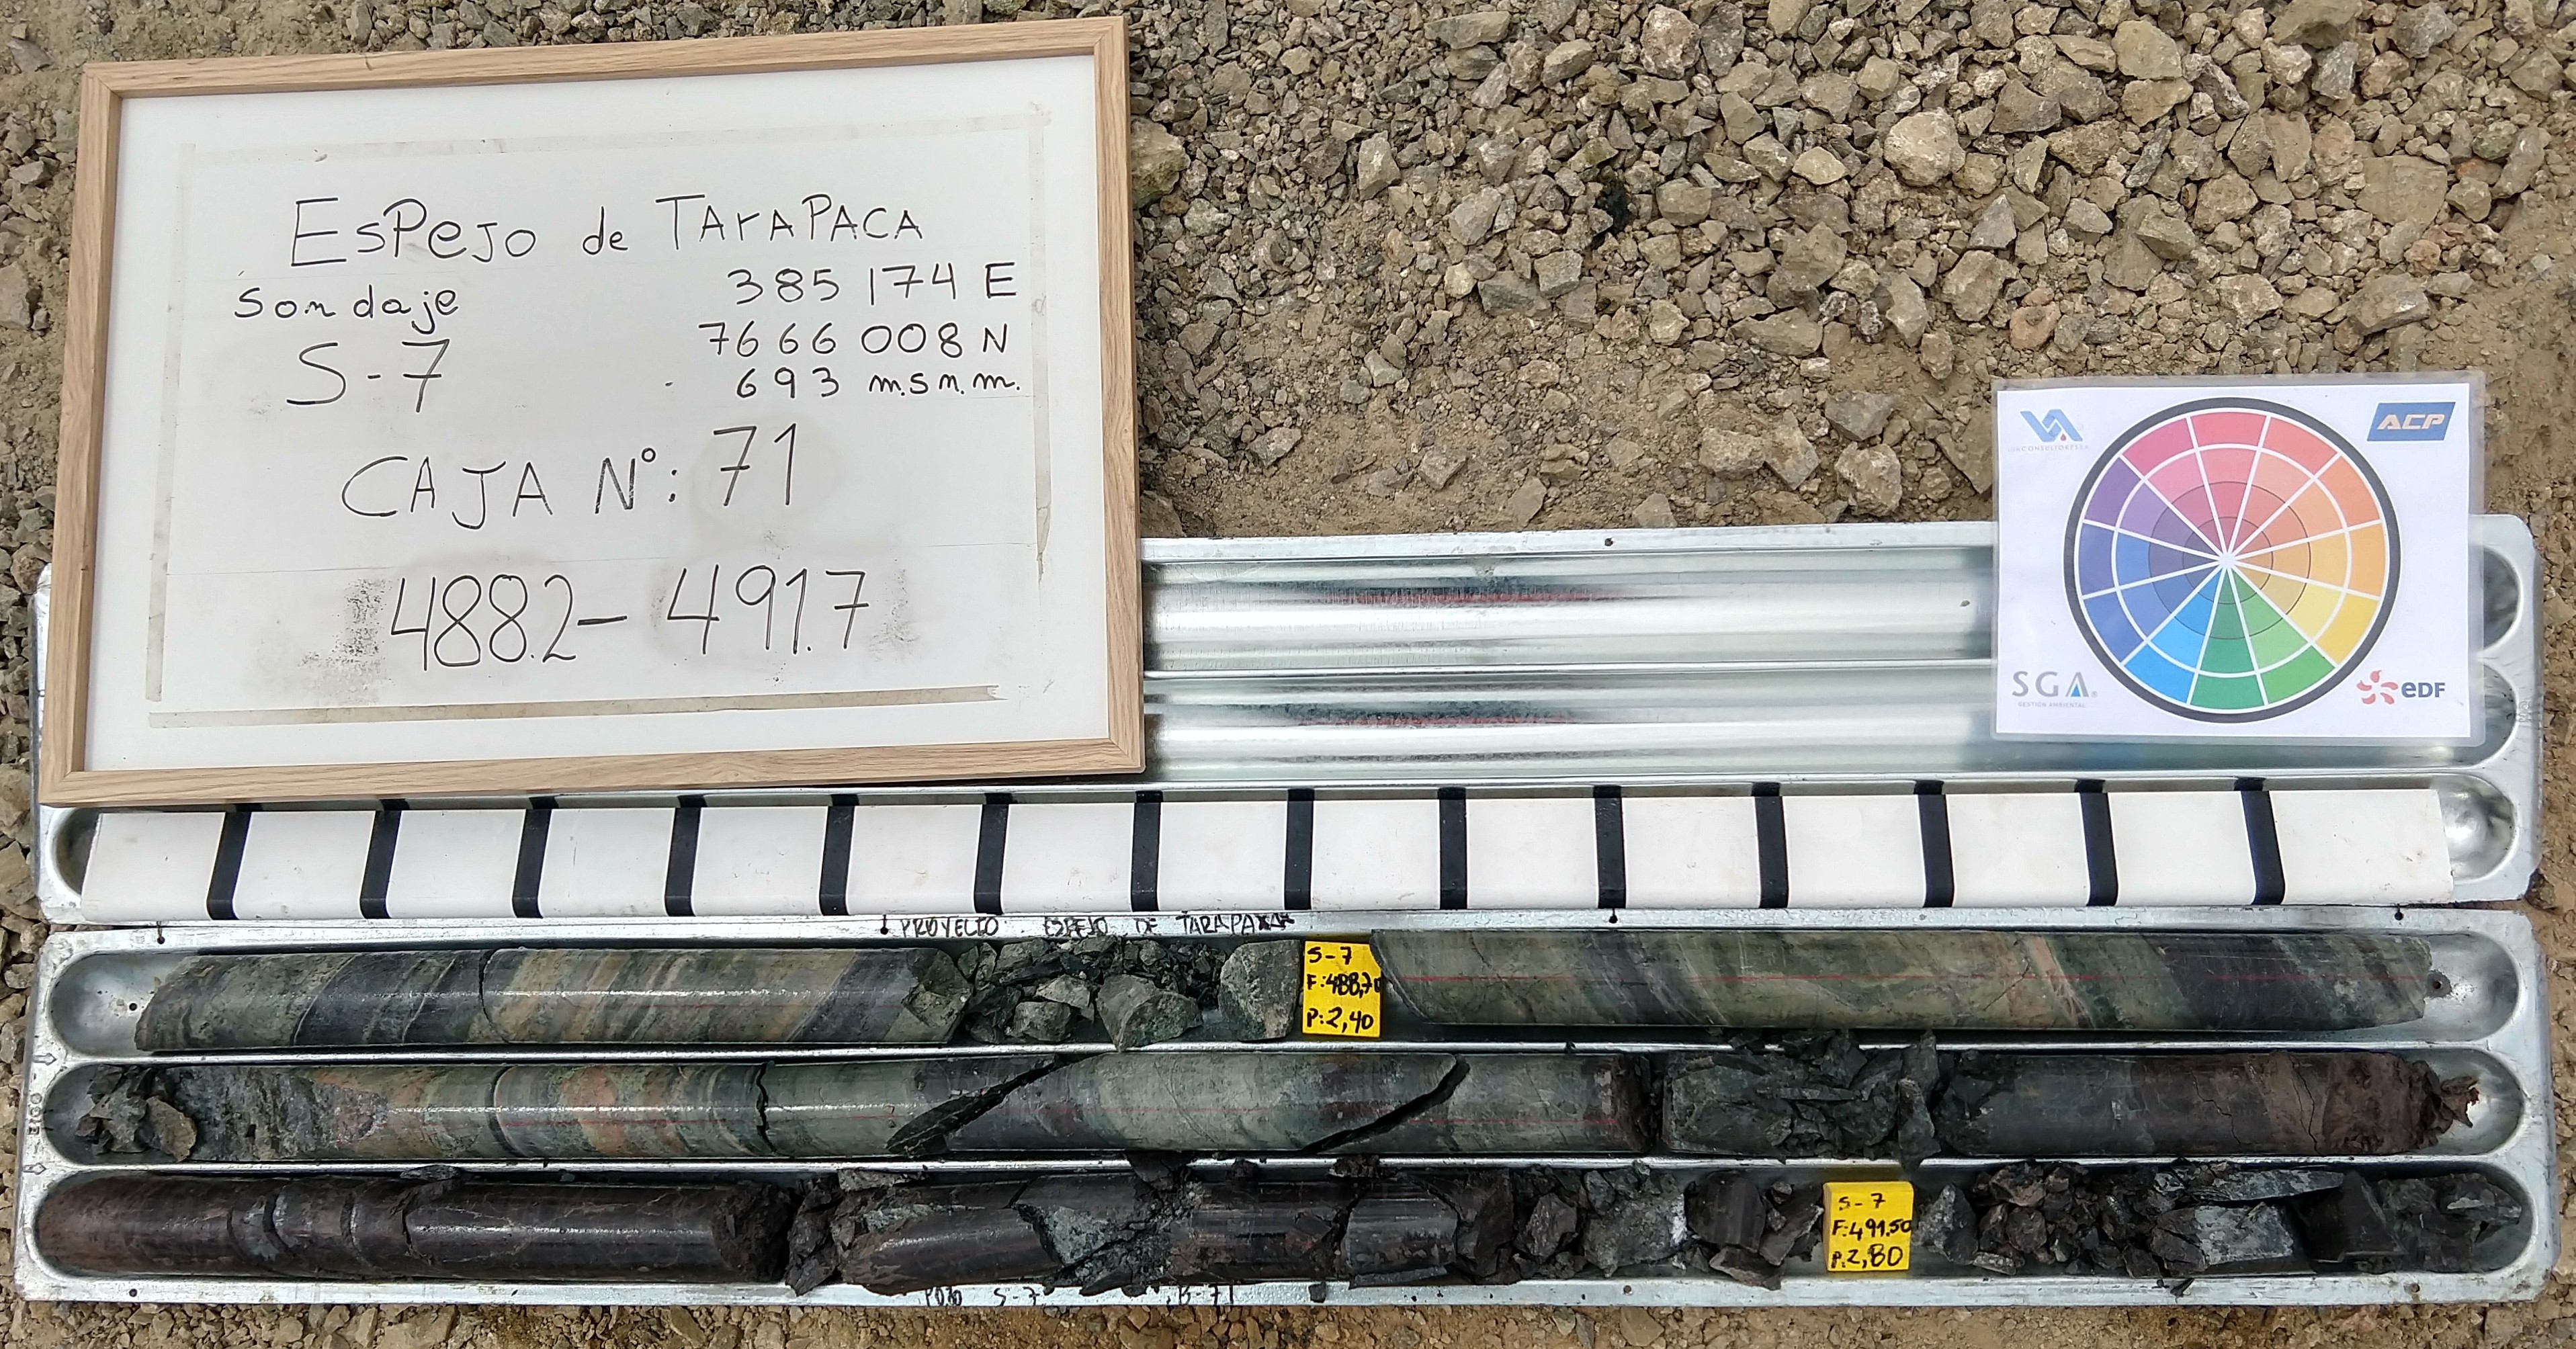 ESPEJO de TARAPACA
Sondaje
385 174 E
7666 008 N
S-7
693 m.s.n.m.
CAJA N°: 71
488.2 - 491.7
ACP
SGA
GESTION AMBIENTAL
eDF
PROYECTO ESPEJO DE TARAPACA
S-7
F:488,70
P:2,40
S-7
F:491.50
P:2,80
POZO S-7 B-71